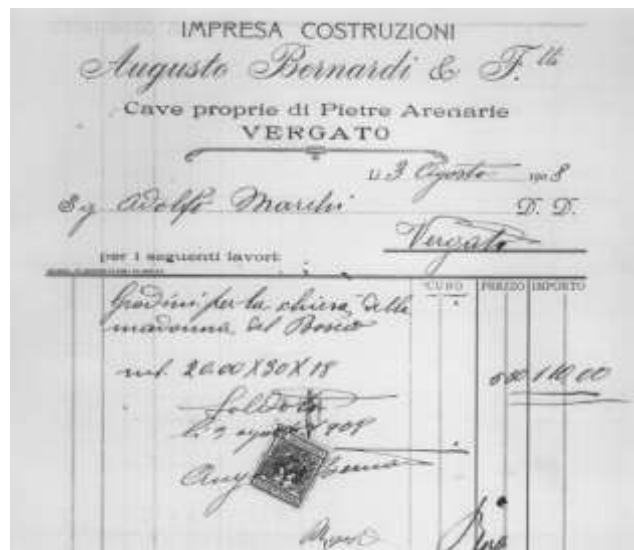 IMPRESA COSTRUZIONI
Augusto Bernardi & F.lli
Cave proprie di Pietre Arenarie
VERGATO
Li 3 Agosto 1908
Sg Adolfo Marchi D. D.
Vergato
per i seguenti lavori:
CUBO PREZZO IMPORTO
Gradini per la chiesa della
madonna del Bosco
ml. 20.00 X 30 X 18 5 50 110,00
Saldato
li 3 agosto 1908